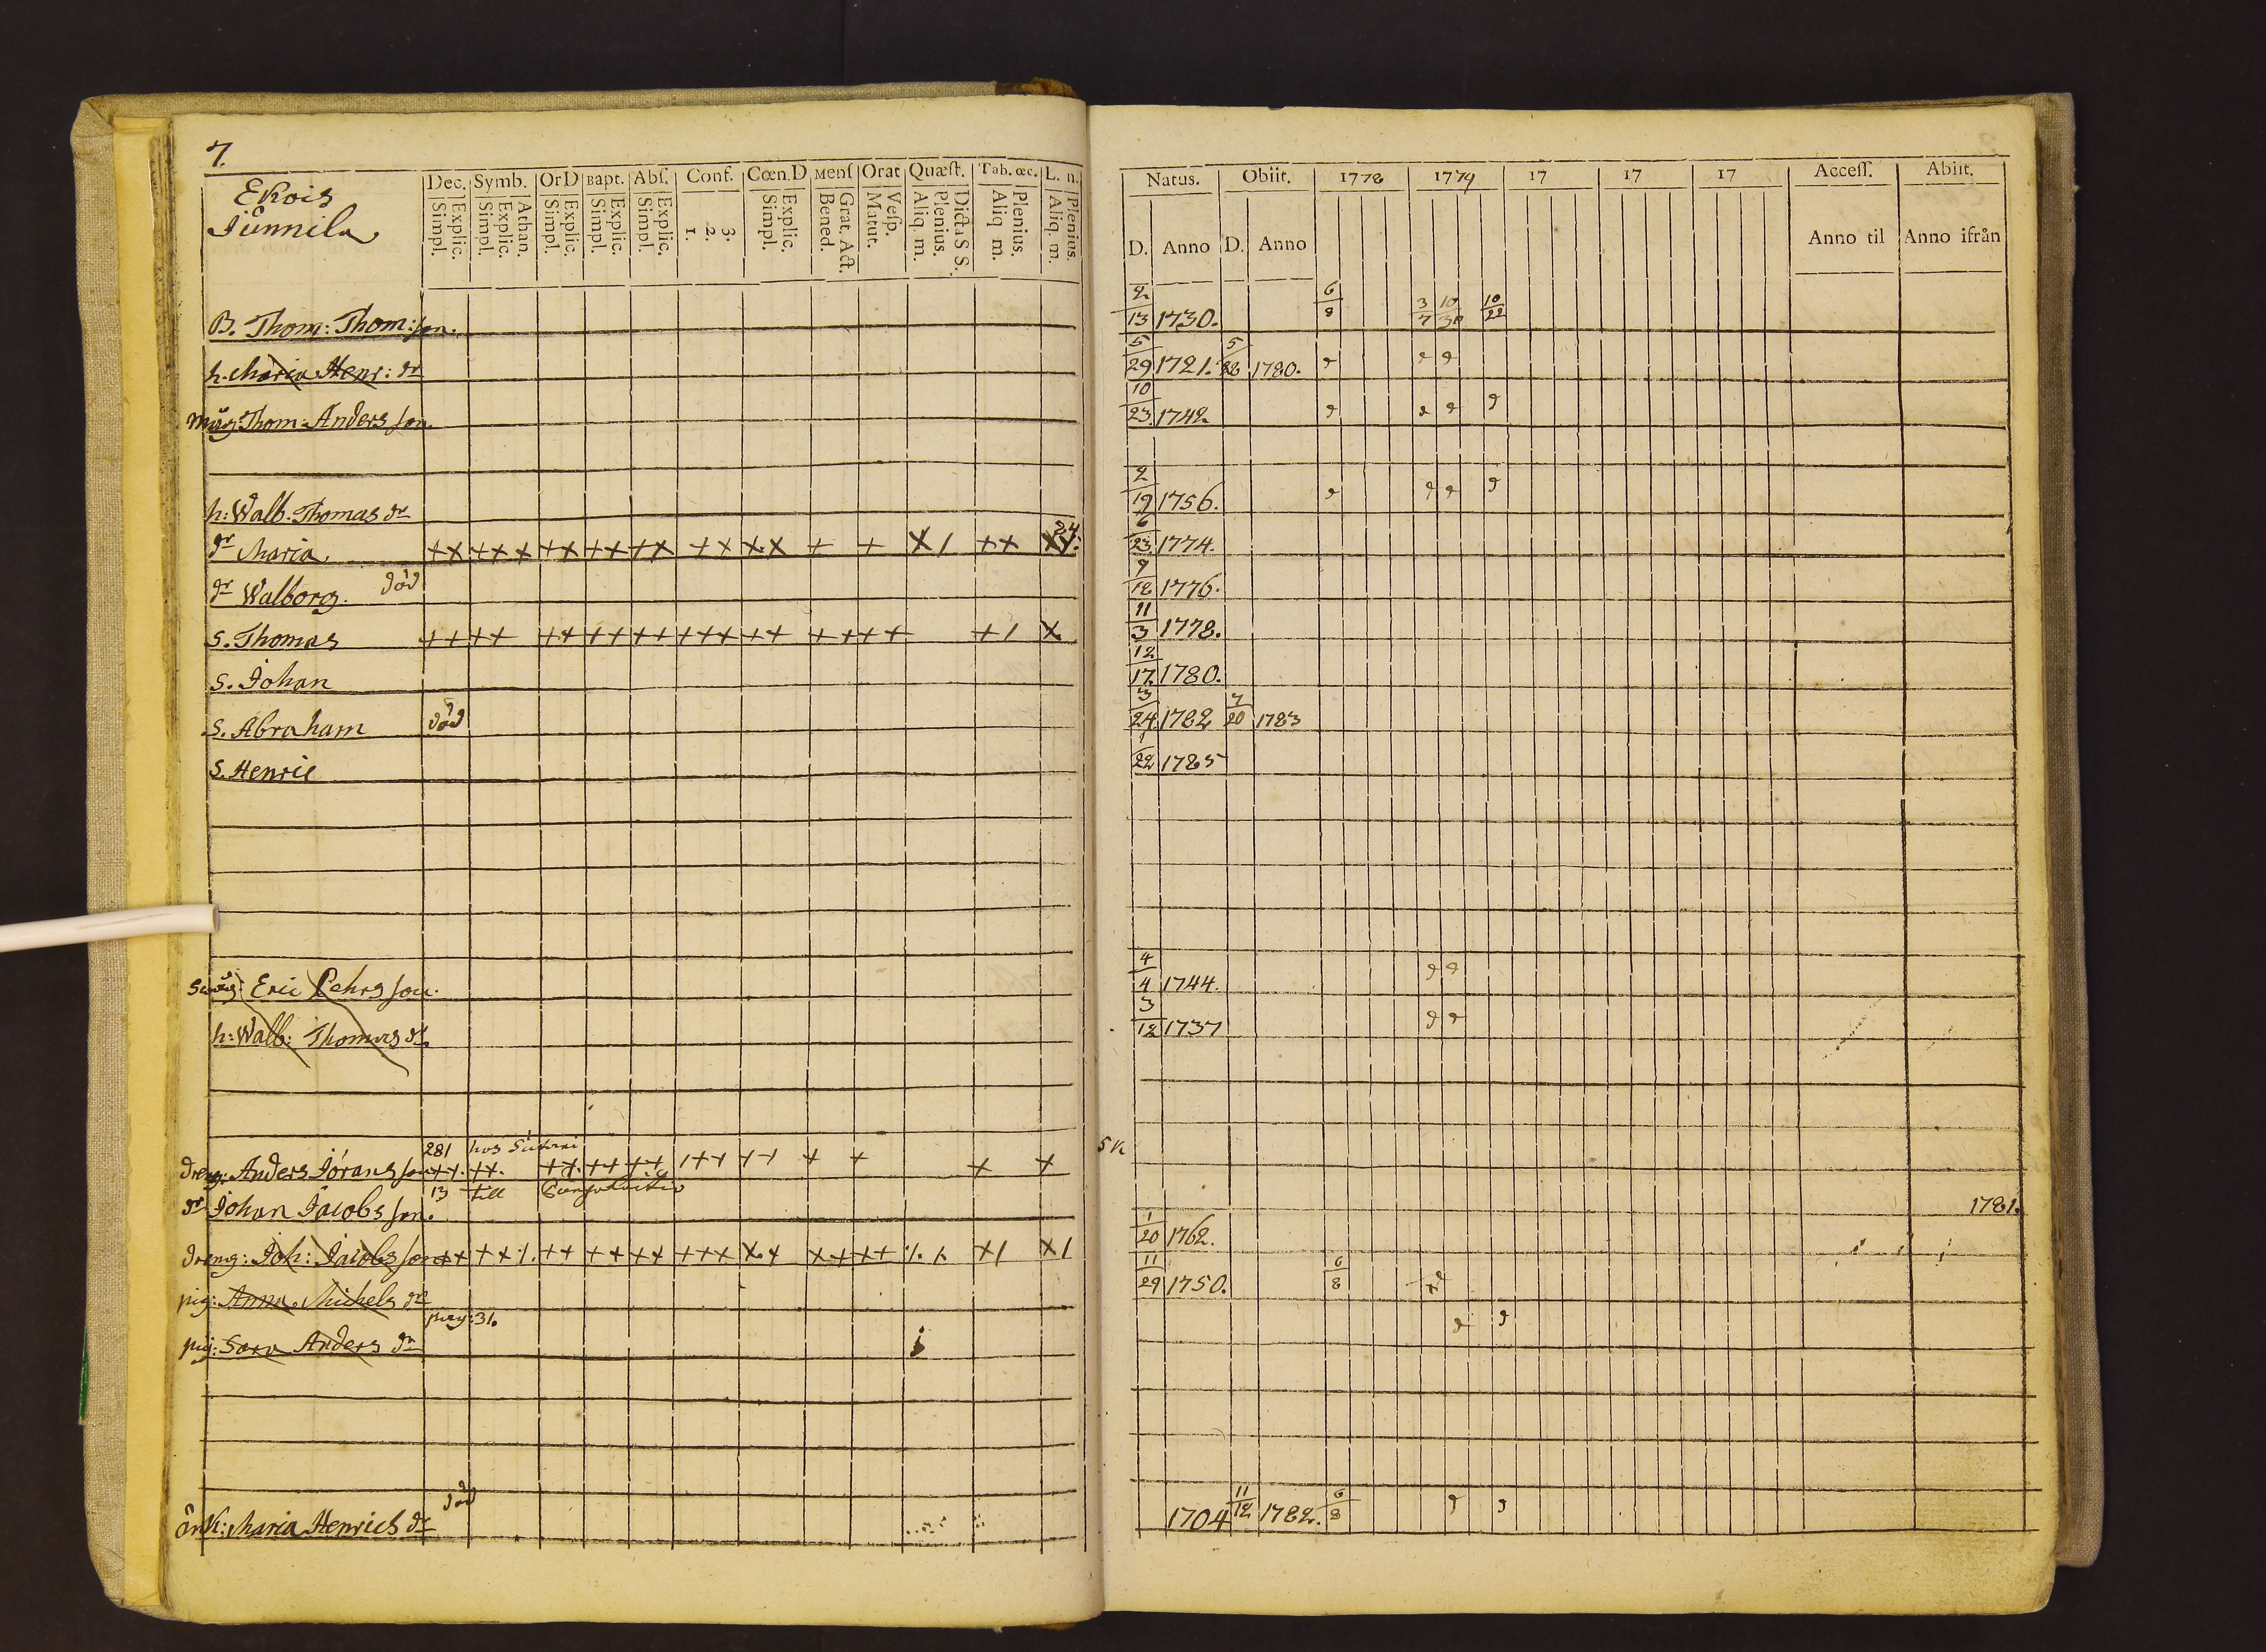 7.
Ekois
Junnila
Dec. Symb. OrD Bapt. Abſ. Conf. Cœn.D Menſ Orat Quæſt. Tab. œc. L. n.
Explic. Simpl. Athan. Explic. Simpl. Explic. Simpl. Explic. Simpl. Explic. Simpl. 3. 2. 1. Explic. Simpl. Grat. Act. Bened. Veſp. Matut. Dicta S S. Plenius. Aliq m. Plenius. Aliq m. Plenius. Aliq. m.
Natus. Obiit. 1778 1779 17 17 17 Acceſſ. Abiit.
D. Anno D. Anno Anno til Anno ifrån
B. Thom: Thom:son. 2/13 1730. 6/8 3/7 10/30 10/22
h. Maria Henr: dr 5/29 1721. 5/28 1780.
måg: Thom: Andersson 10/23 1742
h: Walb. Thomas dr 2/19 1756.
dr Maria ++ +++ ++ ++ ++ ++ ++ + + X/ ++ 6/23 1774.
dr Walborg. död 9/18 1776.
S. Thomas ++ ++ ++ ++ ++ +++ ++ + +++ +/ X 11/3 1778.
S. Johan 12/17 1780.
S. Abraham död 3/24 1782 7/20 1783
S. Henric 1/22 1785
Swåg: Eric Pehrsson 4/4 1744.
h: Walb: Thomas dr 3/12 1737
281 hos
dreng: Anders Jöransson ++ ++ ++ ++ ++ +++ ++ + + + +
13 till
dr Johan Jacobsson. 1781.
dreng: Joh: Jacobsson ++ ++ ++ ++ ++ +++ X+ ++ ++ X/ X/ 1/20 1762.
pig: Anna Michels dr 11/29 1750. 6/8
pag: 31.
pig: Sara Anders dr
död
änk: Maria Henrics dr 1704 11/12 1782. 6/8